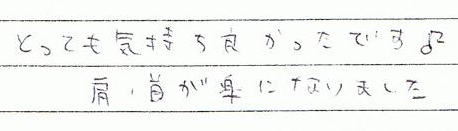 とっても気持ち良かったです♫
肩・首が楽になりました